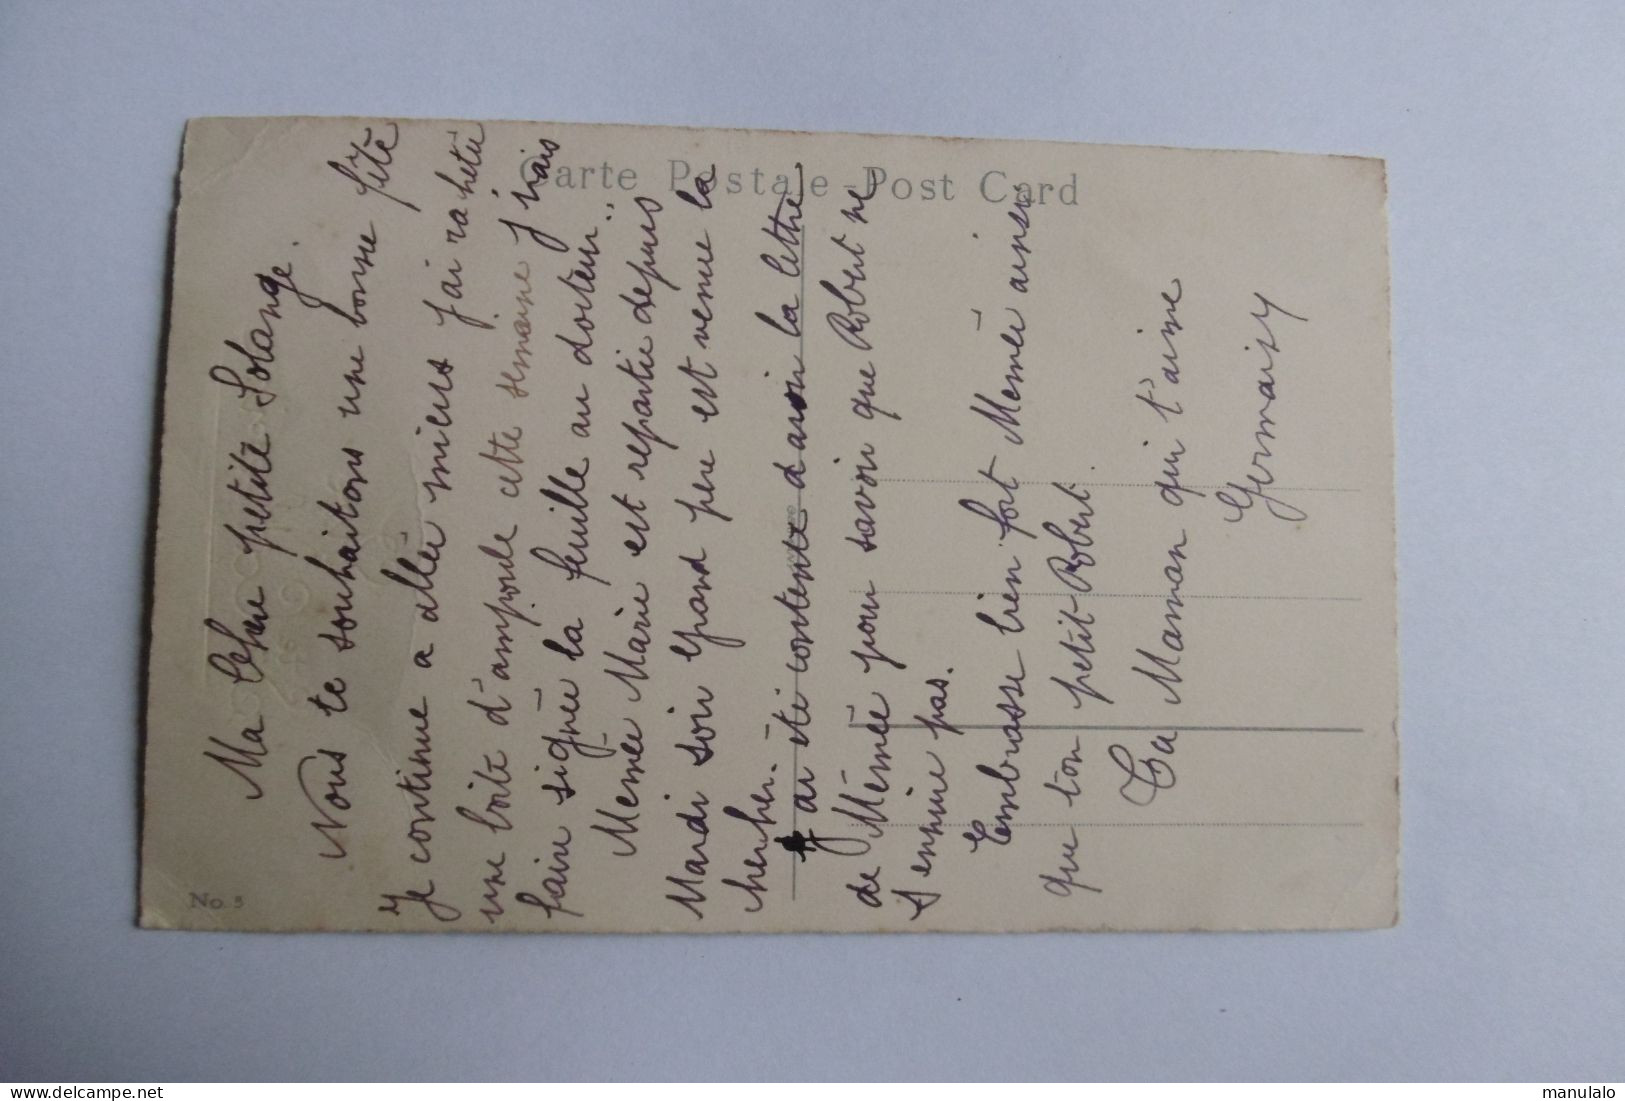 Carte Postale Post Card
No. 5
Ma Chère petite Solange.
Nous te souhaitons une bonne fête
Je continue a aller miens j'ai rahetù
une boite d'ampoule cette semaine j'irais
faire signée la feuille au docteur
Memée Marie est repartie depuis
Mardi soir Grand pere est venue la
cherher.
J'ai été contente d'avoir la lettre
de Mémée pour savoir que Robert ne
s ennuie pas.
Embrasse bien fort Memée ainsi
que ton petit Robert.
Ta Maman qui t'aime
delcampe.net
manulalo